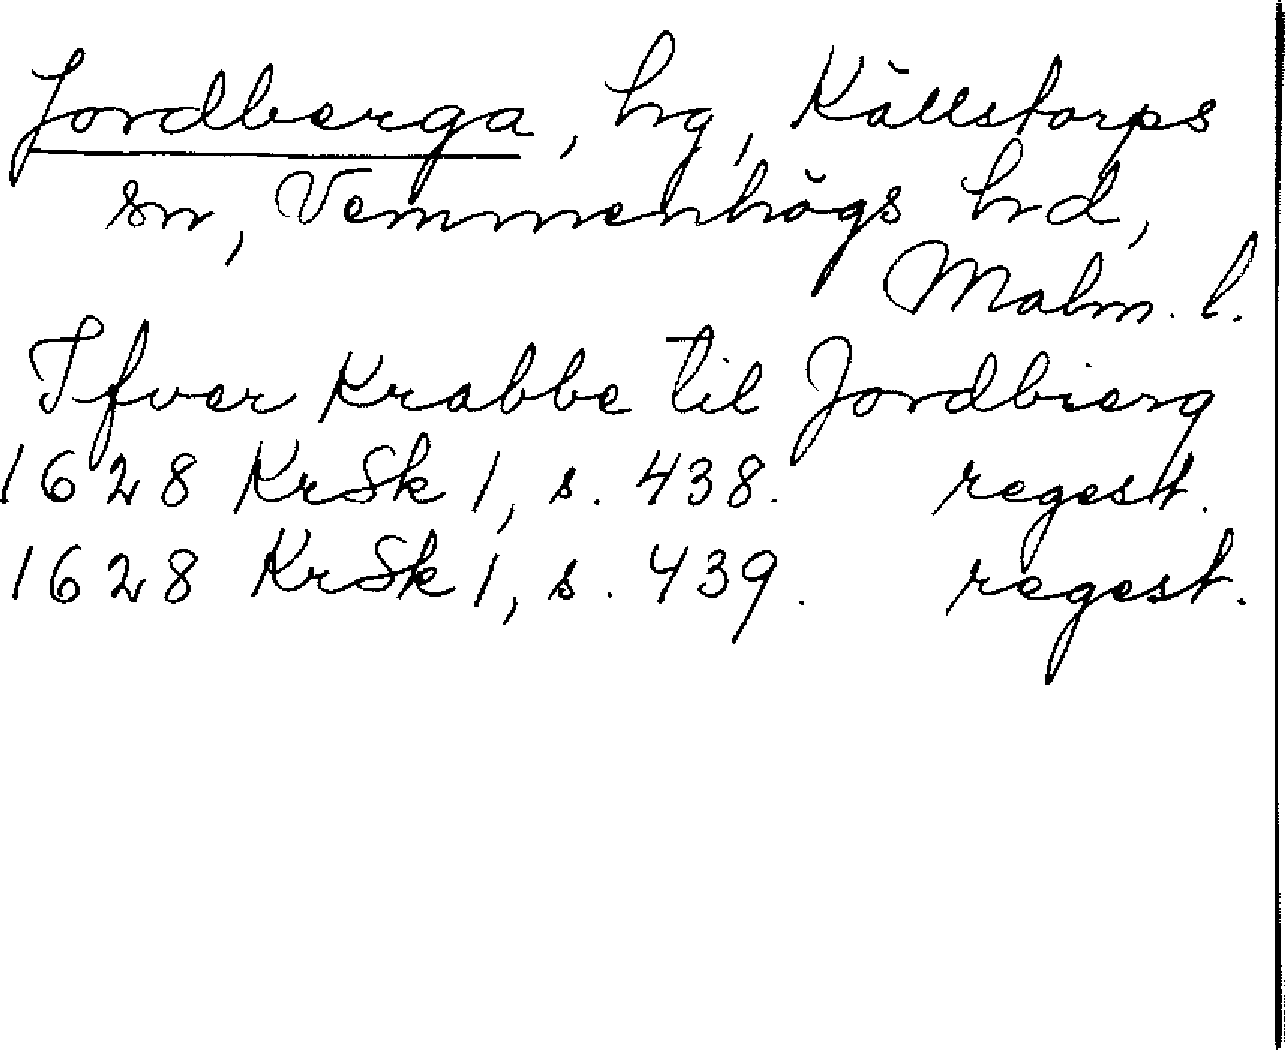 Jordberga, hg, Källstorps
sn, Vemmenhögs hrd,
Malm. l.
Ifver Krabbe til Jordbierg
1628 KrSk 1, s. 438. regest.
1628 KrSk 1, s. 439. regest.